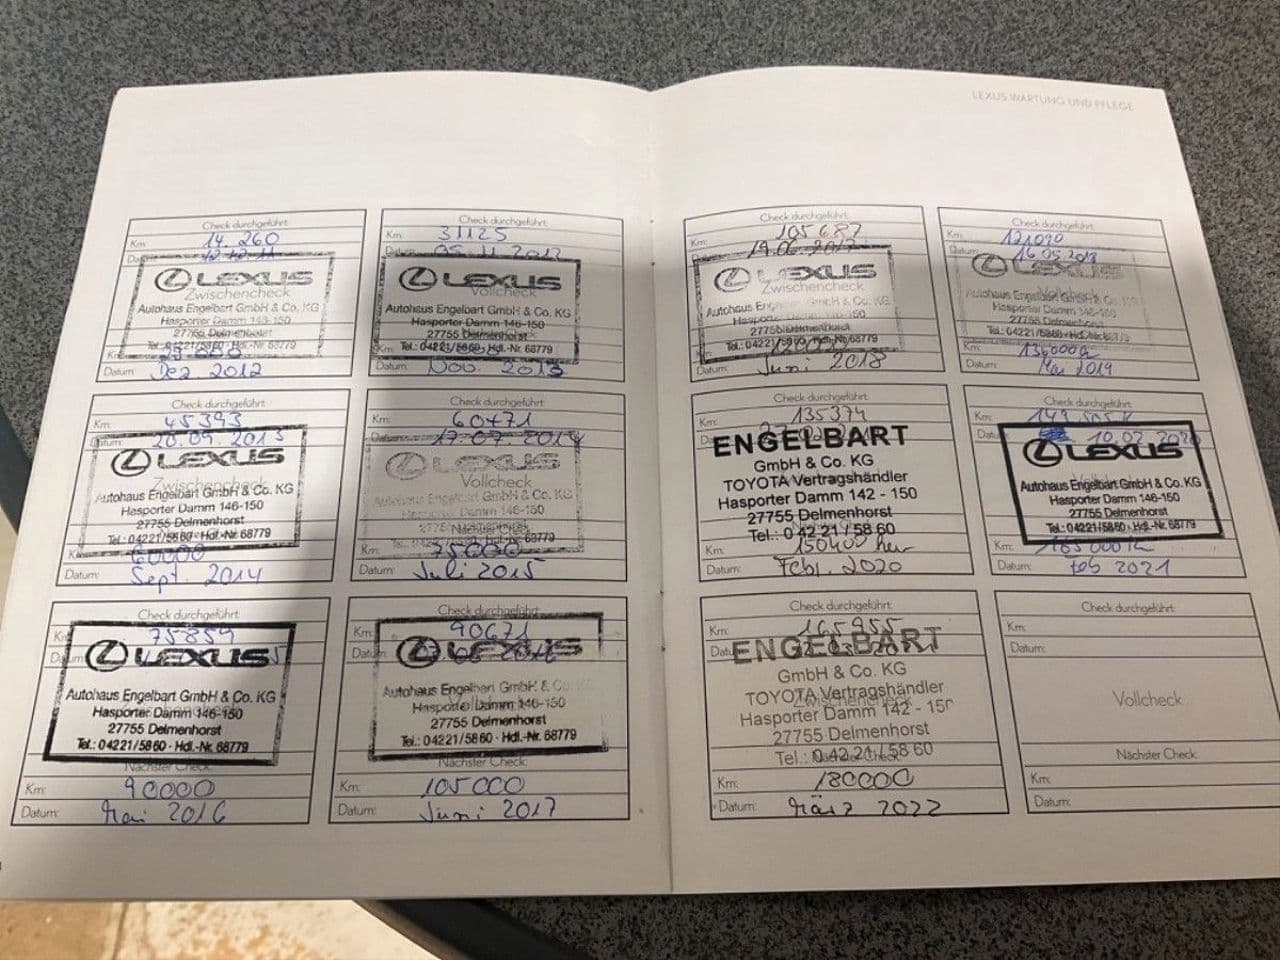 LEXUS WARTUNG UND PFLEGE
Check durchgeführt:
Km: 14.260
LEXUS
Zwischencheck
Autohaus Engelbart GmbH & Co. KG
Hasporter Damm 146-150
27755 Delmenhorst
Tel.: 04221/5860 · Hdl.-Nr. 68779
Datum: Dez. 2012
Check durchgeführt:
Km: 31125
Datum: 05.11.2012
LEXUS
Vollcheck
Autohaus Engelbart GmbH & Co. KG
Hasporter Damm 146-150
27755 Delmenhorst
Tel.: 04221/5860 · Hdl.-Nr. 68779
Datum: Nov. 2013
Check durchgeführt:
Km: 45393
Datum: 20.09.2013
LEXUS
Zwischencheck
Autohaus Engelbart GmbH & Co. KG
Hasporter Damm 146-150
27755 Delmenhorst
Tel.: 04221/5860 · Hdl.-Nr. 68779
Km: 60000
Datum: Sept. 2014
Check durchgeführt:
Km: 60471
Datum: 17.07.2014
LEXUS
Vollcheck
Autohaus Engelbart GmbH & Co. KG
Hasporter Damm 146-150
27755 Delmenhorst
Km: 75000
Datum: Juli 2015
Check durchgeführt:
75859
LEXUS
Autohaus Engelbart GmbH & Co. KG
Hasporter Damm 146-150
27755 Delmenhorst
Tel.: 04221/5860 · Hdl.-Nr. 68779
Nächster Check:
Km: 90000
Datum: Mai 2016
Check durchgeführt:
Km: 90671
LEXUS
Autohaus Engelbart GmbH & Co. KG
Hasporter Damm 146-150
27755 Delmenhorst
Tel.: 04221/5860 · Hdl.-Nr. 68779
Nächster Check:
Km: 105000
Datum: Juni 2017
Check durchgeführt:
Km: 105687
19.06.2017
LEXUS
Zwischencheck
Autohaus Engelbart GmbH & Co. KG
27755 Delmenhorst
Tel.: 04221/5860 · Hdl.-Nr. 68779
Datum: Juni 2018
Check durchgeführt:
Km: 121090
16.05.2018
LEXUS
Vollcheck
Autohaus Engelbart GmbH & Co. KG
Hasporter Damm 146-150
27755 Delmenhorst
Km: 136000
Datum: Mai 2019
Check durchgeführt:
Km: 135374
ENGELBART
GmbH & Co. KG
TOYOTA Vertragshändler
Hasporter Damm 142 - 150
27755 Delmenhorst
Tel.: 0 42 21 / 58 60
Km: 150400
Datum: Febr. 2020
Check durchgeführt:
Km:
10.02.2020
LEXUS
Autohaus Engelbart GmbH & Co. KG
Hasporter Damm 146-150
27755 Delmenhorst
Tel.: 04221/5860 · Hdl.-Nr. 68779
Km:
Datum: Feb 2021
Check durchgeführt:
Km: 165955
ENGELBART
GmbH & Co. KG
TOYOTA Vertragshändler
Zwischencheck
Hasporter Damm 142 - 150
27755 Delmenhorst
Tel.: 0 42 21 / 58 60
Km: 180000
Datum: März 2022
Check durchgeführt:
Km:
Datum:
Vollcheck
Nächster Check:
Km:
Datum: